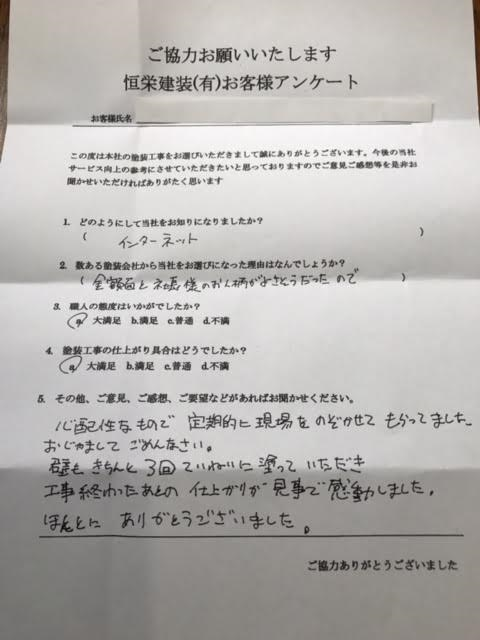 ご協力お願いいたします
恒栄建装(有)お客様アンケート
お客様氏名
この度は本社の塗装工事をお選びいただきまして誠にありがとうございます。今後の当社
サービス向上の参考にさせていただきたいと思っておりますのでご意見ご感想等を是非お
聞かせいただければありがたく思います
1. どのようにして当社をお知りになりましたか?
( インターネット )
2. 数ある塗装会社から当社をお選びになった理由はなんでしょうか?
( 金額面と社長様のお人柄がよさそうだったので )
3. 職人の態度はいかがでしたか?
a. 大満足 b.満足 c.普通 d.不満
4. 塗装工事の仕上がり具合はどうでしたか?
a. 大満足 b.満足 c.普通 d.不満
5. その他、ご意見、ご感想、ご要望などがあればお聞かせください。
心配性なもので 定期的に現場をのぞかせて もらってました
おじゃましてごめんなさい。
壁も きちんと3回ていねいに塗って いただき
工事終わったあとの 仕上がりが 見事で感動しました。
ほんとに ありがとうございました。
ご協力ありがとうございました